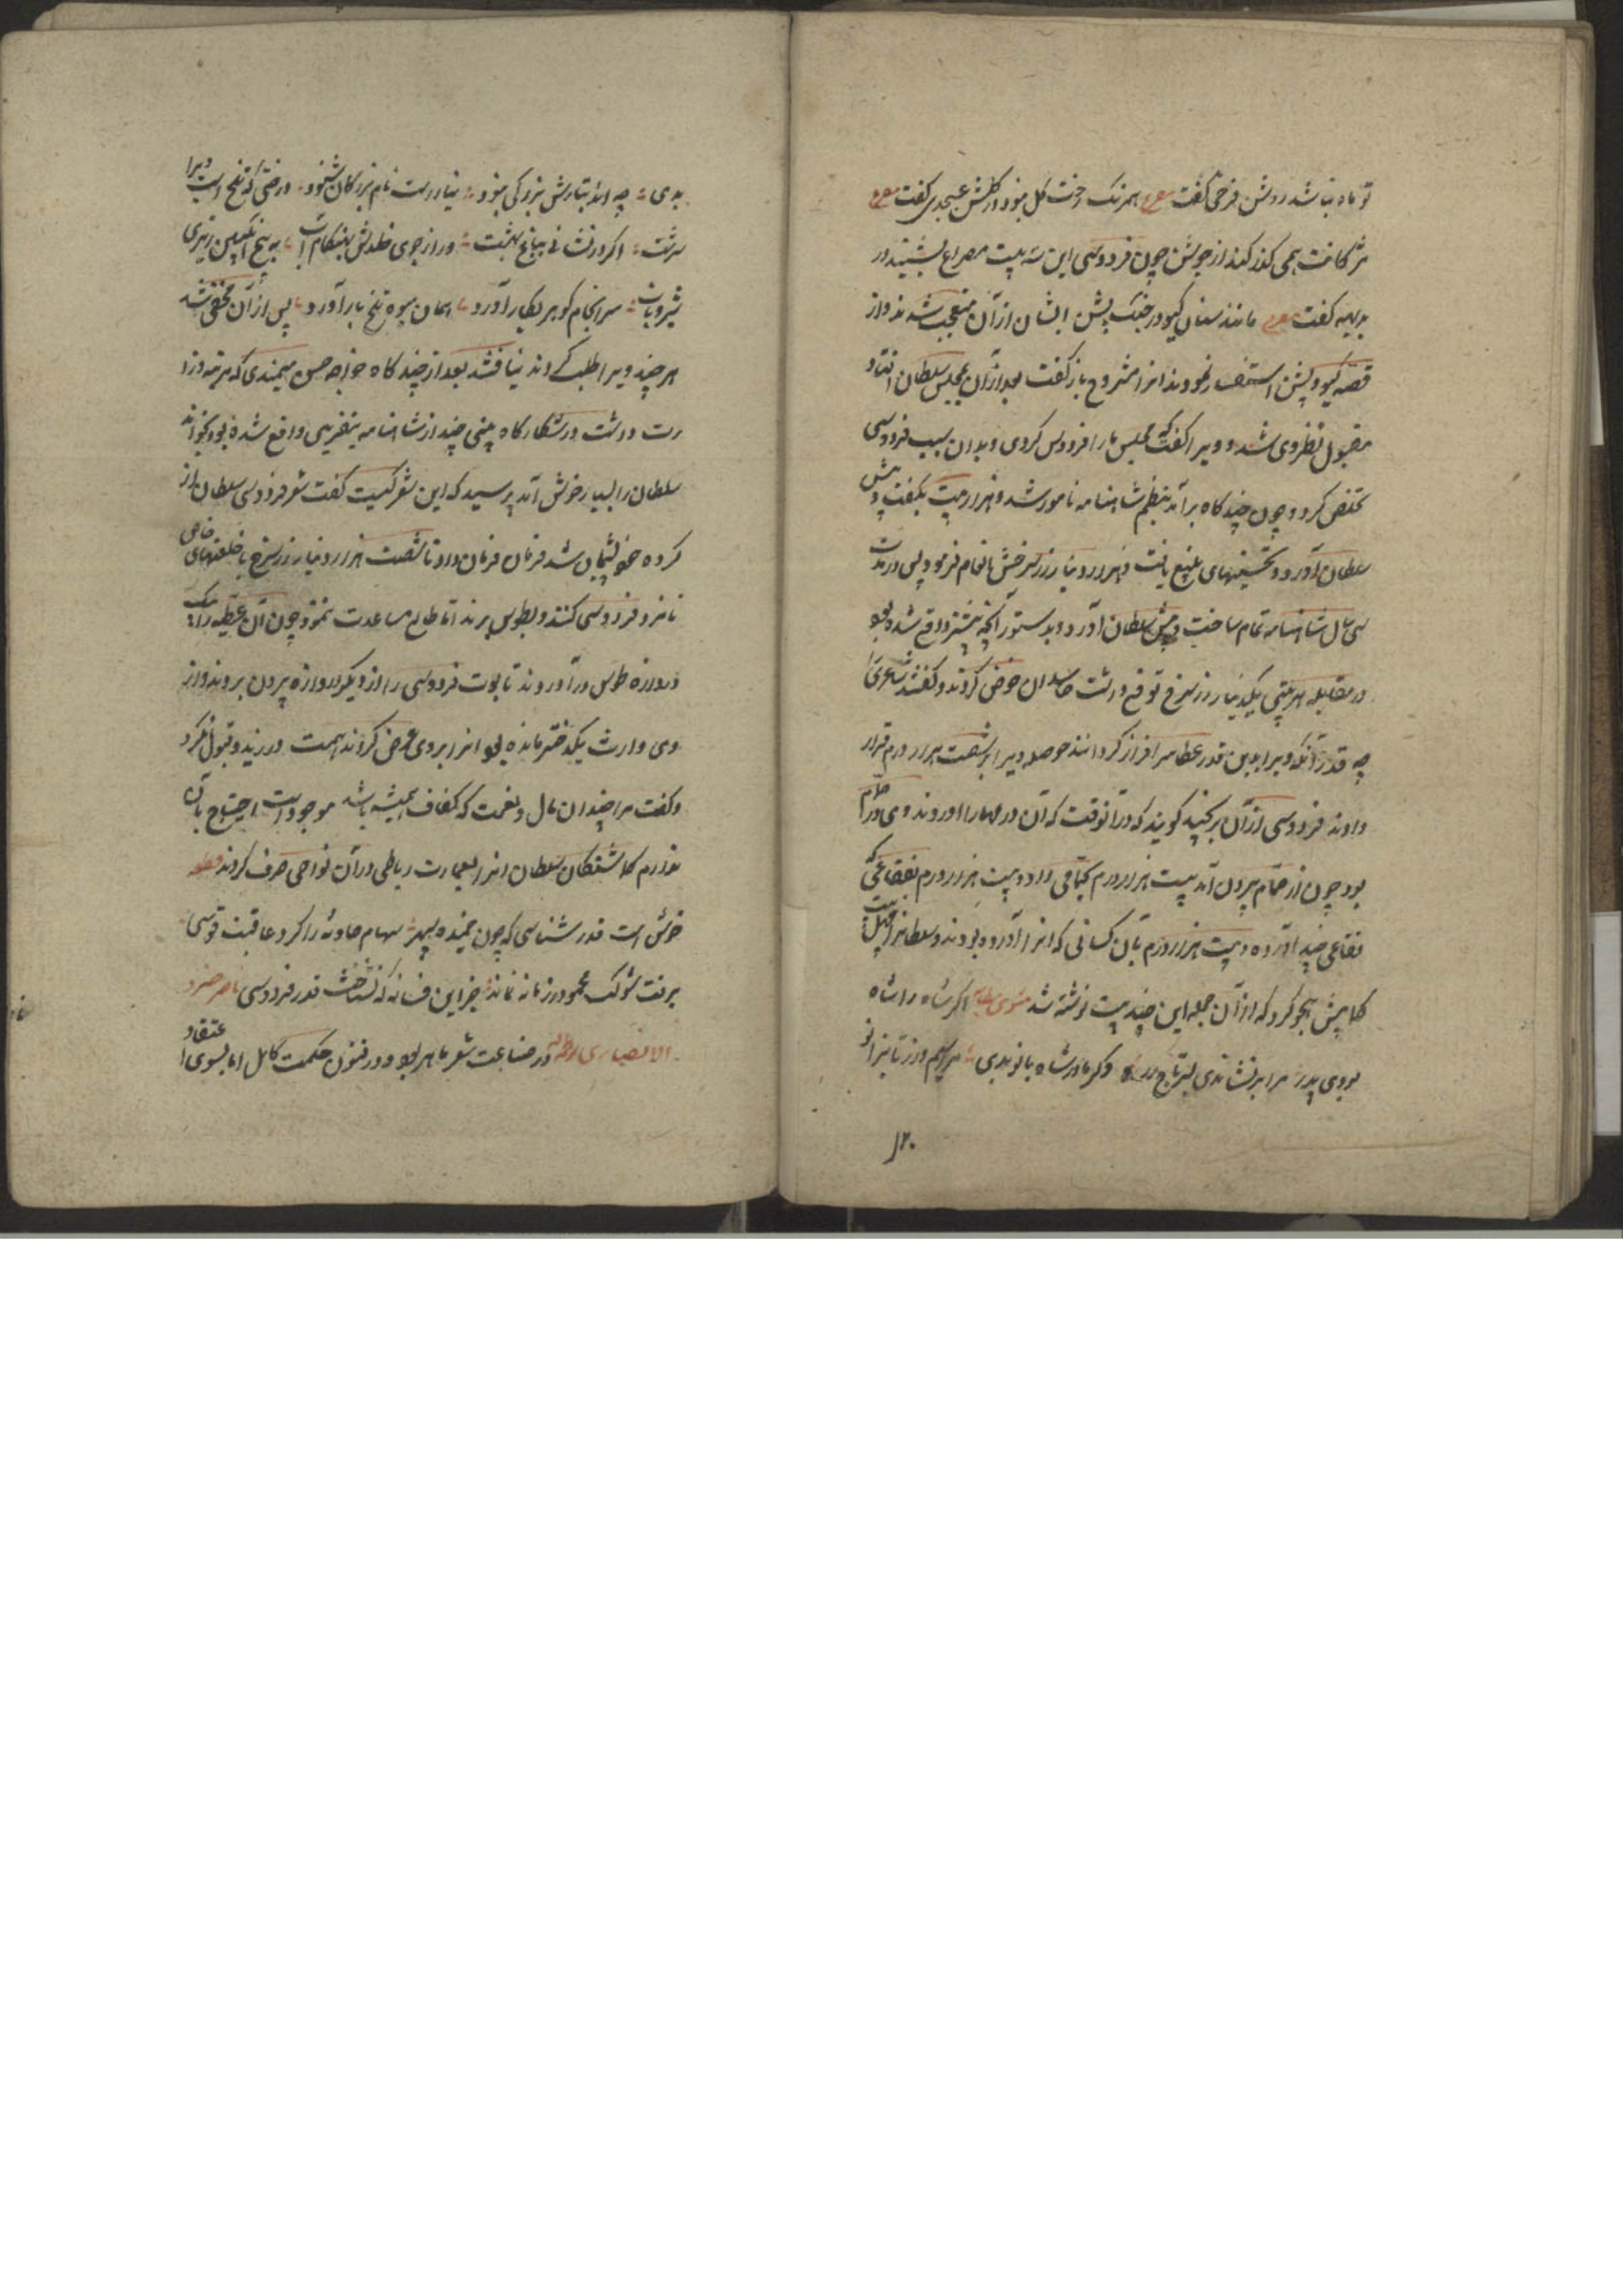 تو ماه نباشد روشن فرخی گفت مصرع همرنک رخت گل نبود در گلشن عسجدی گفت مصرع
مژگانت همی گذر کند از جوشن چون فردوسی این سه بیت مصراع بشنید در
بدیهه گفت مصرع مانند سنان گیو در جنگ پشن ایشان از آن متعجب شدند و از
قصه گیو و پشن استفسار نمودند انرا مشروح باز گفت بعد از آن بمجلس سلطان افتاد و
مقبول نظر وی شد و ویرا گفت که مجلس ما را فردوس کردی و بدان سبب فردوسی
تخلص کرد و چون چند گاه بر آمد بنظم شاهنامه نامور شد و هزار بیت بگفت و پیش
سلطان آورد و تحسینهای بلیغ یافت و هزار دینار زر سرخش انعام فرمود پس در مدت
سی سال شاهنامه تمام ساخت و پیش سلطان آورد و بدستور آنچه پیشتر واقع شده بود
در مقابله هر بیتی یکدینار زر سرخ توقع داشت حاسدان خوض کردند و گفتند شاعری را
چه قدر آنکه ویرا بدین قدر عطا سر افراز گردانند صله ویرا بر شصت هزار درم قرار
دادند فردوسی از آن برنجید گویند که در آنوقت که آن درمها را اوردند وی در حمام
بود چون از حمام بیرون آمد بیست هزار درم بحمامی داد و بیست هزار درم بفقاعی که
فقاعی چند آورده و بیست هزار درم بآن کسانی که انرا آورده بودند و سلطانرا چهل بیت
کمابیش هجو کرد که از آن جمله این چند بیت نوشته شد مثنوی اگر شاه را شاه
بودی پدر مرا بر نشاندی بسر تاج زر وگر مادر شاه بانو بدی مرا سیم و زر تا بزانو
۱۲۰
بدی چه اندر تبارش بزرگی نبود نیارست نام بزرگان شنود درختی که تلخ است ویرا
سرشت اگر در نشانی بباغ بهشت ور از جوی خلدش بهنگام آب به بیخ انگبین ریزی
شیر و ناب سرانجام گوهر بکار آورد همان میوه تلخ بار آورد پس از آن مخفی شد
هر چند ویرا طلب کردند نیافتند بعد از چند گاه خواجه حسن میمندی که مرتبه وزا
رت داشت در شکارگاه بیتی چند از شاهنامه بتقریبی واقع شده بود بخواند
سلطان را بسیار خوش آمد پرسید که این شعر کیست گفت شعر فردوسی سلطان از
کرده خود پشیمان شد فرمان فرمان داد تا شصت هزار دینار زر سرخ با خلعتهای خاص
نامزد فردوسی کنند و بطوس برند اما طالع مساعدت ننمود چون آن عطیه را بیک
دروازه طوس در آوردند تابوت فردوسی را از دیگر دروازه بیرون بردند و از
وی وارث یکدختر مانده بود انرا بروی عرض کردند همت ورزید و قبول نکرد
و گفت مرا چندان مال و نعمت که کفاف معیشه باشد موجود است احتیاج بآن
ندارم گماشتگان سلطان انرا بعمارت رباطی در آن نواحی صرف کردند قطعه
خوش است قدر شناسی که چون خمیده سپهر سهام حادثه را کرد عاقبت قوسی
برفت شوکت محمود و در زمانه نماند جز این فسانه که نشناخت قدر فردوسی ناصر خسرو
الانصاری در صناعت شعر ماهر بود و در فنون حکمت کامل اما بسوی اعتقاد